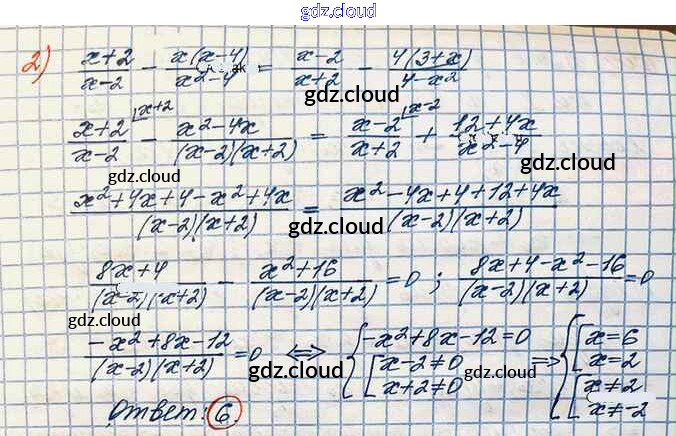 gdz.cloud
2) (x+2)/(x-2) - x(x-4)/(x²-4) = (x-2)/(x+2) - 4(3+x)/(4-x²)
gdz.cloud
(x+2)/(x-2) ⌊x+2 - (x²-4x)/((x-2)(x+2)) = (x-2)/(x+2) ⌊x-2 + (12+4x)/(x²-4)
gdz.cloud
(x²+4x+4-x²+4x)/((x-2)(x+2)) = (x²-4x+4+12+4x)/((x-2)(x+2))
gdz.cloud
(8x+4)/((x-2)(x+2)) - (x²+16)/((x-2)(x+2)) = 0 ; (8x+4-x²-16)/((x-2)(x+2)) = 0
gdz.cloud gdz.cloud gdz.cloud
(-x²+8x-12)/((x-2)(x+2)) = 0 ⟺ { -x²+8x-12=0 [ x-2≠0 x+2≠0 ⟹ { [ x=6 x=2 [ x≠2 x≠-2
gdz.cloud gdz.cloud
Ответ: 6.